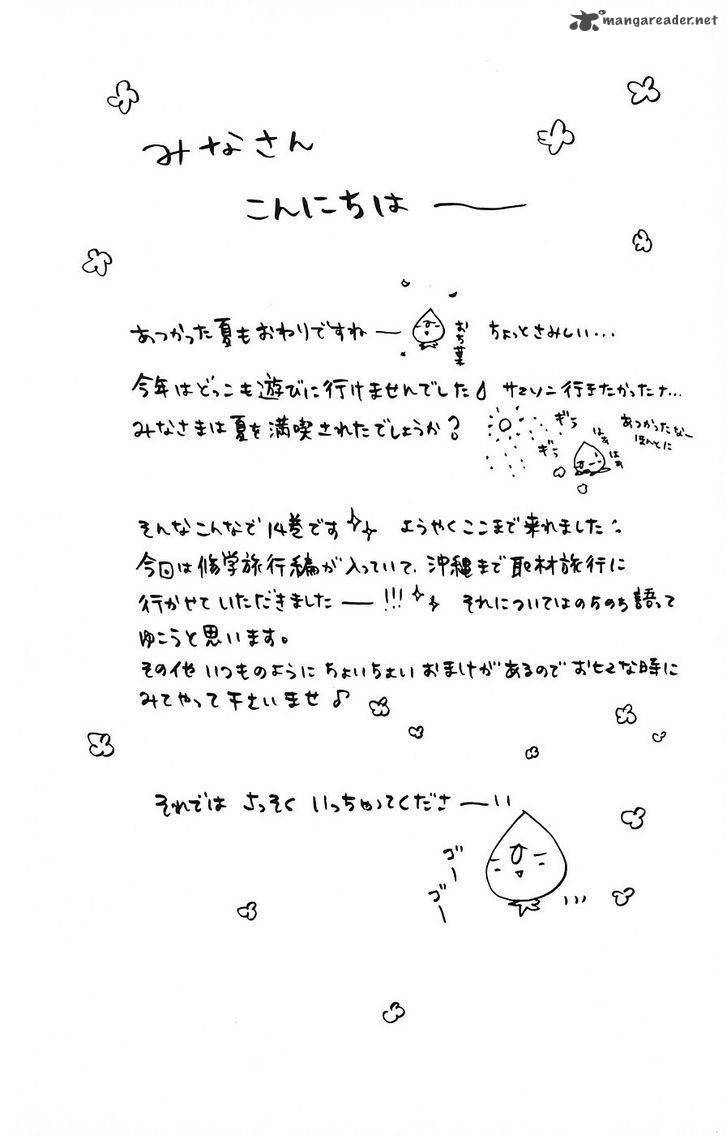 mangareader.net
みなさん
こんにちは ——
あつかった夏もおわりですね—
おち葉
ちょっとさみしい...
今年はどっこも遊びに行けませんでした サマソニ行きたかったナ...
みなさまは夏を満喫されたでしょうか?
ぎら
ぎら
はぁ
はぁ
あつかったなー
ほんとに
そんなこんなで14巻です ようやくここまで来れました
今回は修学旅行編が入っていて、沖縄まで取材旅行に
行かせていただきました——!!! それについてはのちのち語って
ゆこうと思います。
その他いつものようにちょいちょいおまけがあるのでおヒマな時に
みてやって下さいませ♪
それでは さっそく いっちゃってくださ—い
ゴー
ゴー